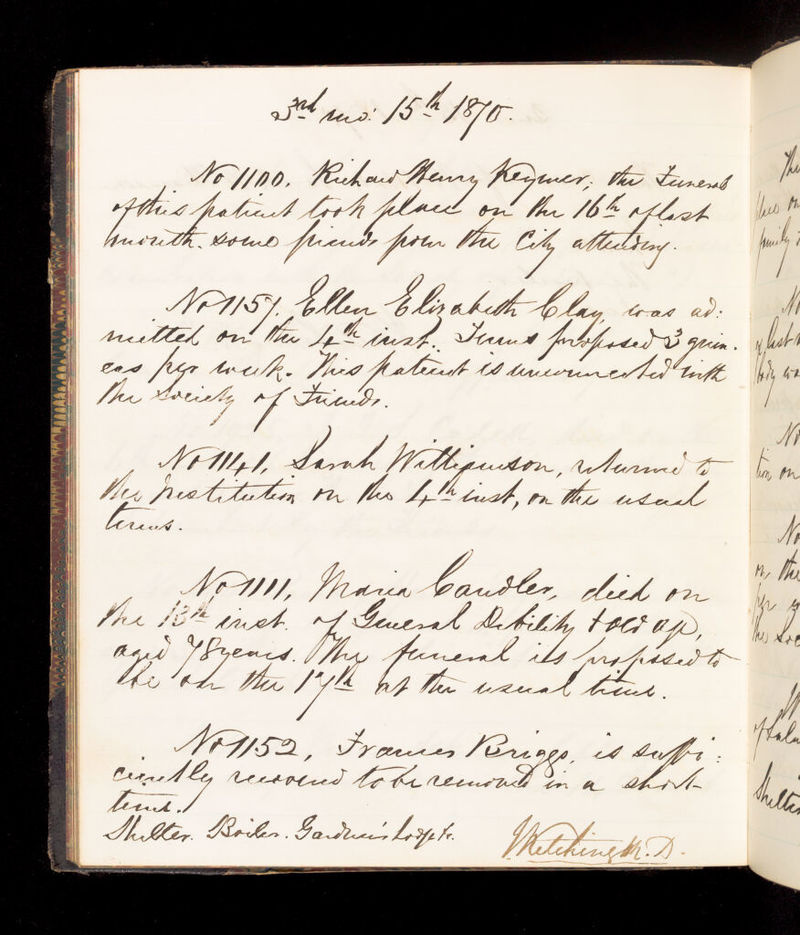 3rd mo: 15th 1870.
No 1100. Richard Henry Keymer; the Funeral
of this patient took place on the 16th of last
month. some friends from the City attending.
No 1157. Ellen Elizabeth Clay, was ad:
mitted on the 4th inst. Terms proposed 3 guin:
eas per week. This patient is unconnected with
the Society of Friends.
No 1141, Sarah Williamson, returned to
the Institution on the 4th inst, on the usual
terms.
No 1111, Maria Candler, died on
the 13th inst. of General Debility & old age,
aged 78 years. The funeral is proposed to
be on the 17th at the usual time.
No 1152, Frances Briggs, is suffi:
ciently recovered to be removed in a short
time.
Shelter. Boiler. Gardener's Lodge &c.
J Kitching M.D.